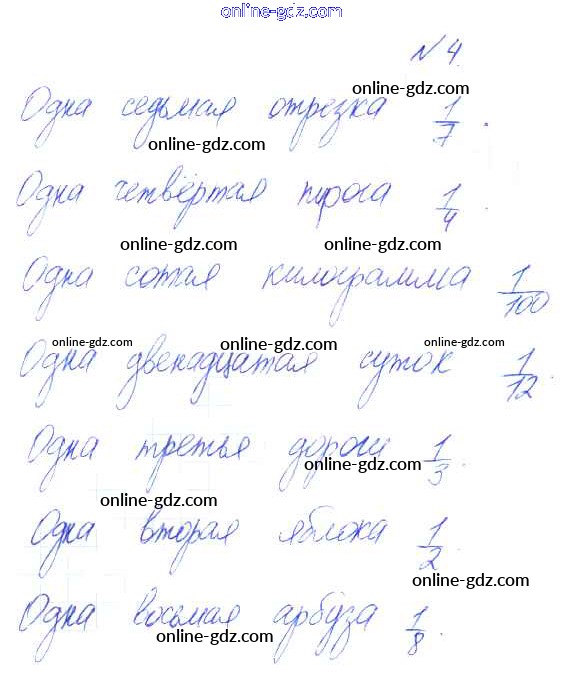 online-gdz.com
№ 4.
online-gdz.com
Одна седьмая отрезка 1/7.
online-gdz.com
Одна четвёртая пирога 1/4.
online-gdz.com online-gdz.com
Одна сотая килограмма 1/100
online-gdz.com online-gdz.com online-gdz.com
Одна двенадцатая суток 1/12.
Одна третья дороги 1/3.
online-gdz.com
online-gdz.com
Одна вторая яблока 1/2.
online-gdz.com
Одна восьмая арбуза 1/8.
online-gdz.com